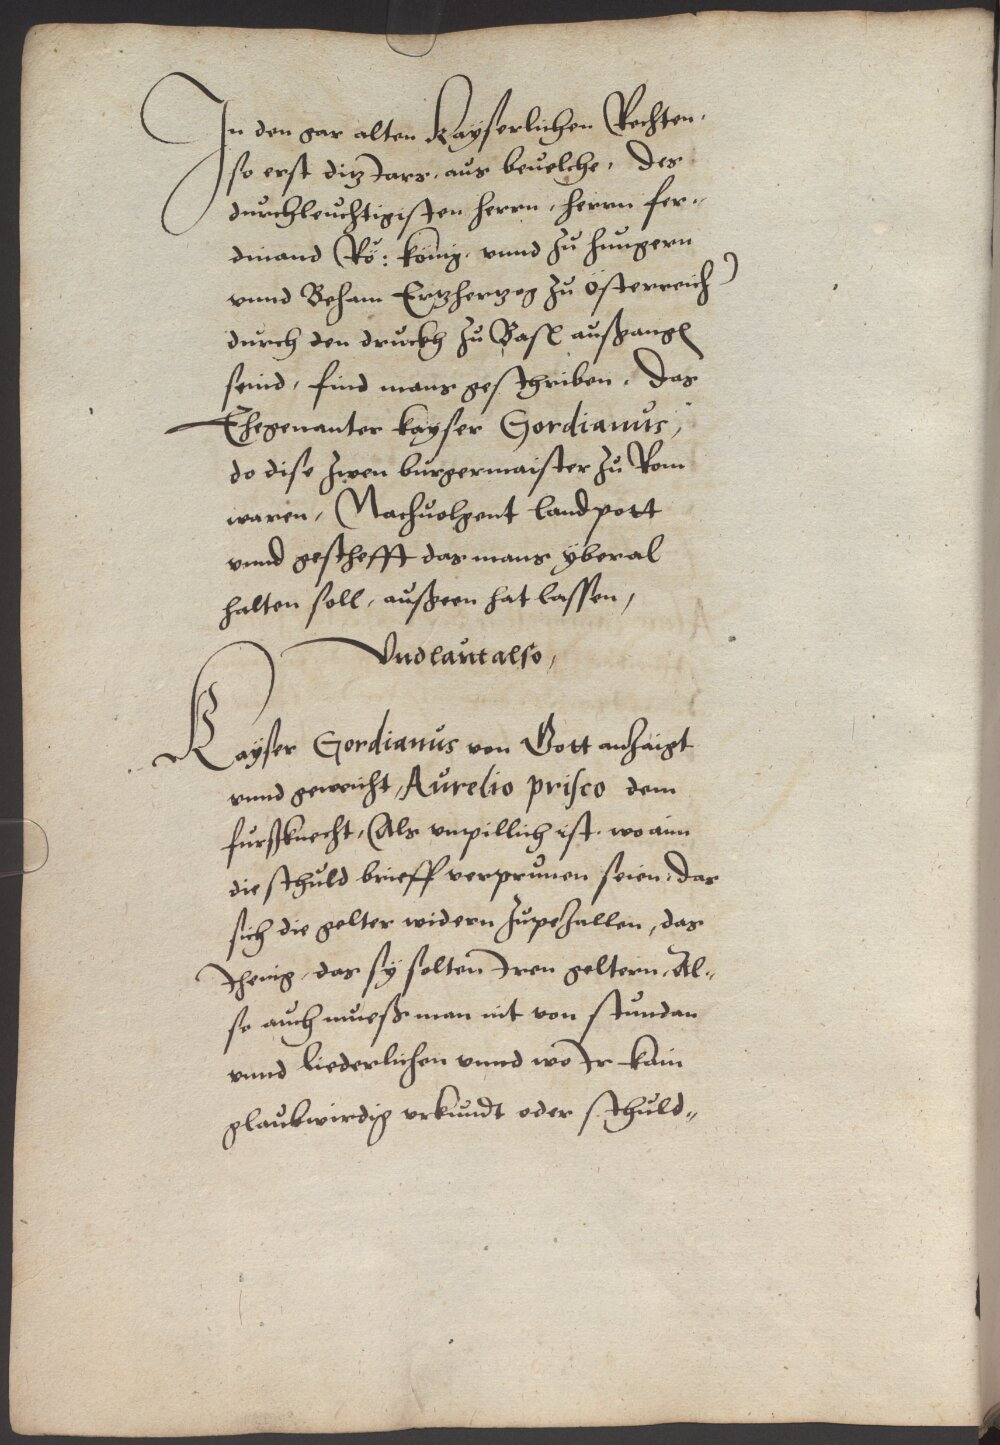 In den gar alten Kayserlichen Rechten.
so erst ditz Jars. aus beuelche. des
durchleuchtigisten herrn. herrn fer-
dinand Rö: könig. vnnd zu hungern
vnnd Beham Ertzhertzog zu österreich
durch den druckh zu Basl außgangen
seind, find mans geschriben. das
Ehegenanter kayser Gordianus,
do dise zwen burgermaister zu Rom
waren, Nachuolgent landpott
vnnd geschefft das mans yberal
halten soll, außgeen hat lassen,
Vnd laut also,
Kayser Gordianus von Gott anzaigt
vnnd geweicht, Aurelio prisco dem
fursstknecht, Als vnpillich ist. wo aim
die schuld brieff verprunen seien. das
sich die gelter widern zupezallen, das
Jhenig. das sy solten Iren geltern. Al-
so auch muess man nit von stundan
vnnd liederlichen vnnd wo Ir kain
glaubwirdig vrkundt oder schuld-